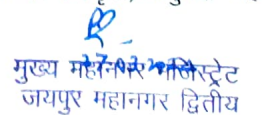 मुख्य महानगर मजिस्ट्रेट
जयपुर महानगर द्वितीय